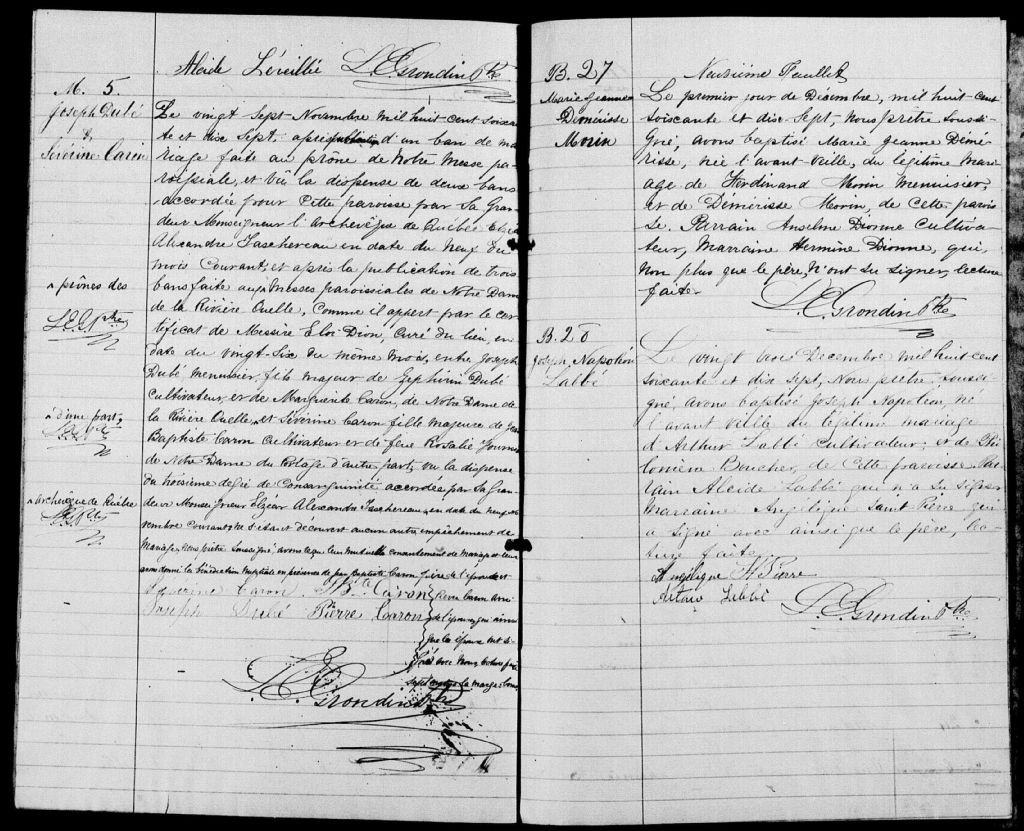 Alcide Léveillé L.E. Grondin Ptre
M. 5.
Joseph Dubé
&
Séverine Caron
Le vingt Sept Novembre mil huit cent soixan-
te et dix Sept, après publication d'un ban de ma-
riage faite au prône de Notre Messe pa-
roissiale, et Vû la dispense de deux bans
accordée pour Cette paroisse par Sa Gran-
deur Monseigneur l'Archevêque de Québec Elzéar
Alexandre Taschereau en date du Neuf du
mois Courant, et après la publication de trois
bans faite aux Messes paroissiales de Notre Dame
^ prônes des
L.E.G. Ptre
de la Rivière Ouelle, Comme il appert par le cer-
tificat de Messire Eloi Dion, Curé du lieu, en
date du vingt-Six du même mois, entre Joseph
Dubé Menuisier, fils majeur de Zéphirin Dubé
Cultivateur, et de Marguerite Caron, de Notre Dame de
^ d'une part,
la Rivière Ouelle, et Séverine Caron fille majeure de Jean
Baptiste Caron Cultivateur et de feue Rosalie
de Notre Dame du Portage d'autre part, vu la dispense
du troisième degré de Consanguinité accordée par Sa Gran-
^ archevêque de Québec
deur Monseigneur Elzéar Alexandre Taschereau, en date du neuf no-
vembre courant, ne S'étant découvert aucun autre empêchement de
Mariage, Nous prêtre Soussigné avons reçu leur mutuel consentement de mariage et leur
avons donné la bénédiction nuptiale en présence de Jean Baptiste Caron, père de l'épouse et
Séverine Caron J. Bte Caron Pierre Caron ami
Joseph Dubé Pierre Caron de l'époux, qui ainsi
que les époux ont si-
gné avec Nous,
la marge
L.E. Grondin Ptre
Neuvième Feuillet
B. 27
Marie Jeanne
Démérisse
Morin
Le premier jour de Décembre, mil huit cent
soixante et dix-Sept, Nous prêtre soussi-
gné, avons baptisé Marie Jeanne Démé-
risse, née l'avant-veille, du légitime mari-
age de Ferdinand Morin Menuisier,
et de Démérisse Morin, de Cette parois
se. Parrain Anselme Dionne Cultiva-
teur, Marraine Hermine Dionne, qui,
Non plus que le père, N'ont Su signer, lecture
faite.
L.E. Grondin Ptre
B. 28
Joseph Napoléon
Labbé
Le vingt Décembre mil huit cent
soixante et dix Sept, Nous prêtre soussi-
gné, avons baptisé Joseph Napoléon, né
l'avant veille du légitime mariage
d'Arthur Labbé Cultivateur, et de Phi-
lomène Boucher, de Cette paroisse. Par-
rain Alcide Labbé qui n'a Su signer
Marraine Angélique Saint Pierre qui
a Signé avec ainsi que le père, lec-
ture faite.
Angélique St Pierre
Labbé
L.E. Grondin Ptre